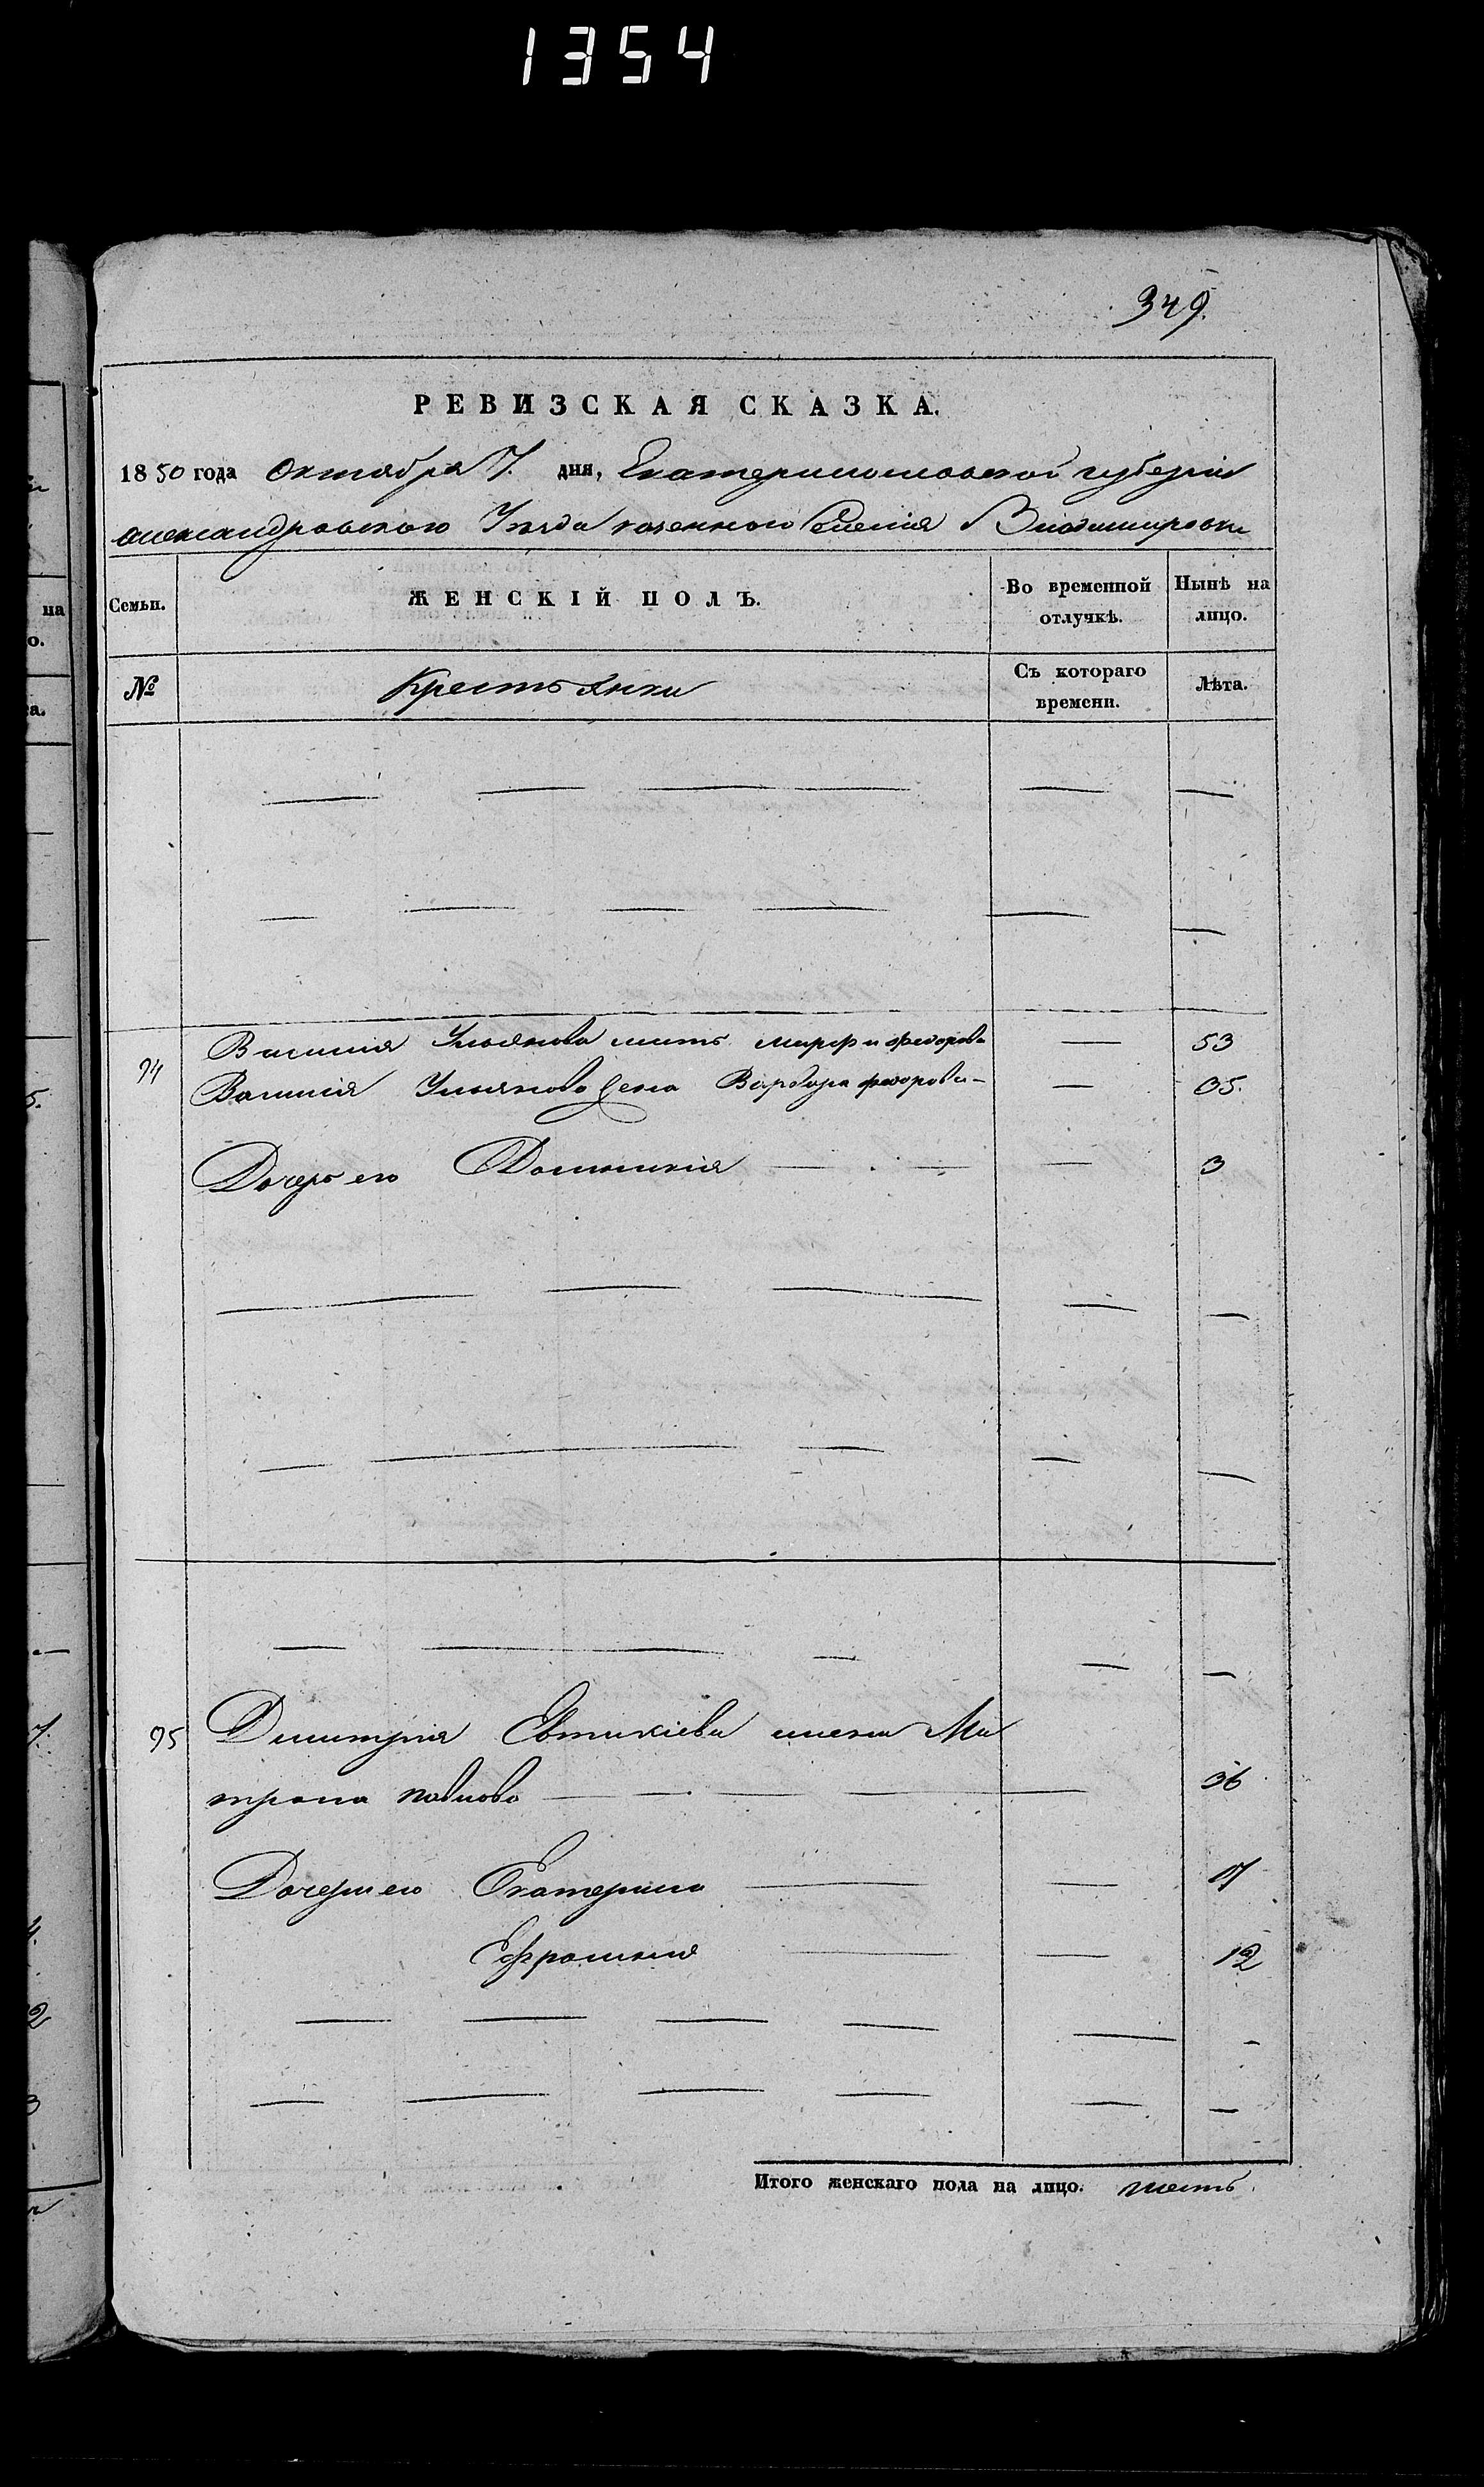 1354
349.
РЕВИЗСКАЯ СКАЗКА.
1850 года Октября 7. дня, Екатеринославской губерніи
Александровскаго Уезда казенного селенія Владимировки
Семьи.
ЖЕНСКІЙ ПОЛЪ.
Во временной отлучкѣ.
Ныпѣ на лицо.
№
Крестьянки
Съ котораго времени.
Лѣта.
94 Василия Ульянова мать Марфа Федорова — 53
Василия Ульянова жена Варвара Федорова — — 35.
Дочерь его Домникия — — — 3
95 Димитрия Евтихіева жена Ма
трона Павлова — 36
Дочери его Екатерина — — 17
Ефросиния — — 12
Итого женскаго пола на лицо. шесть.